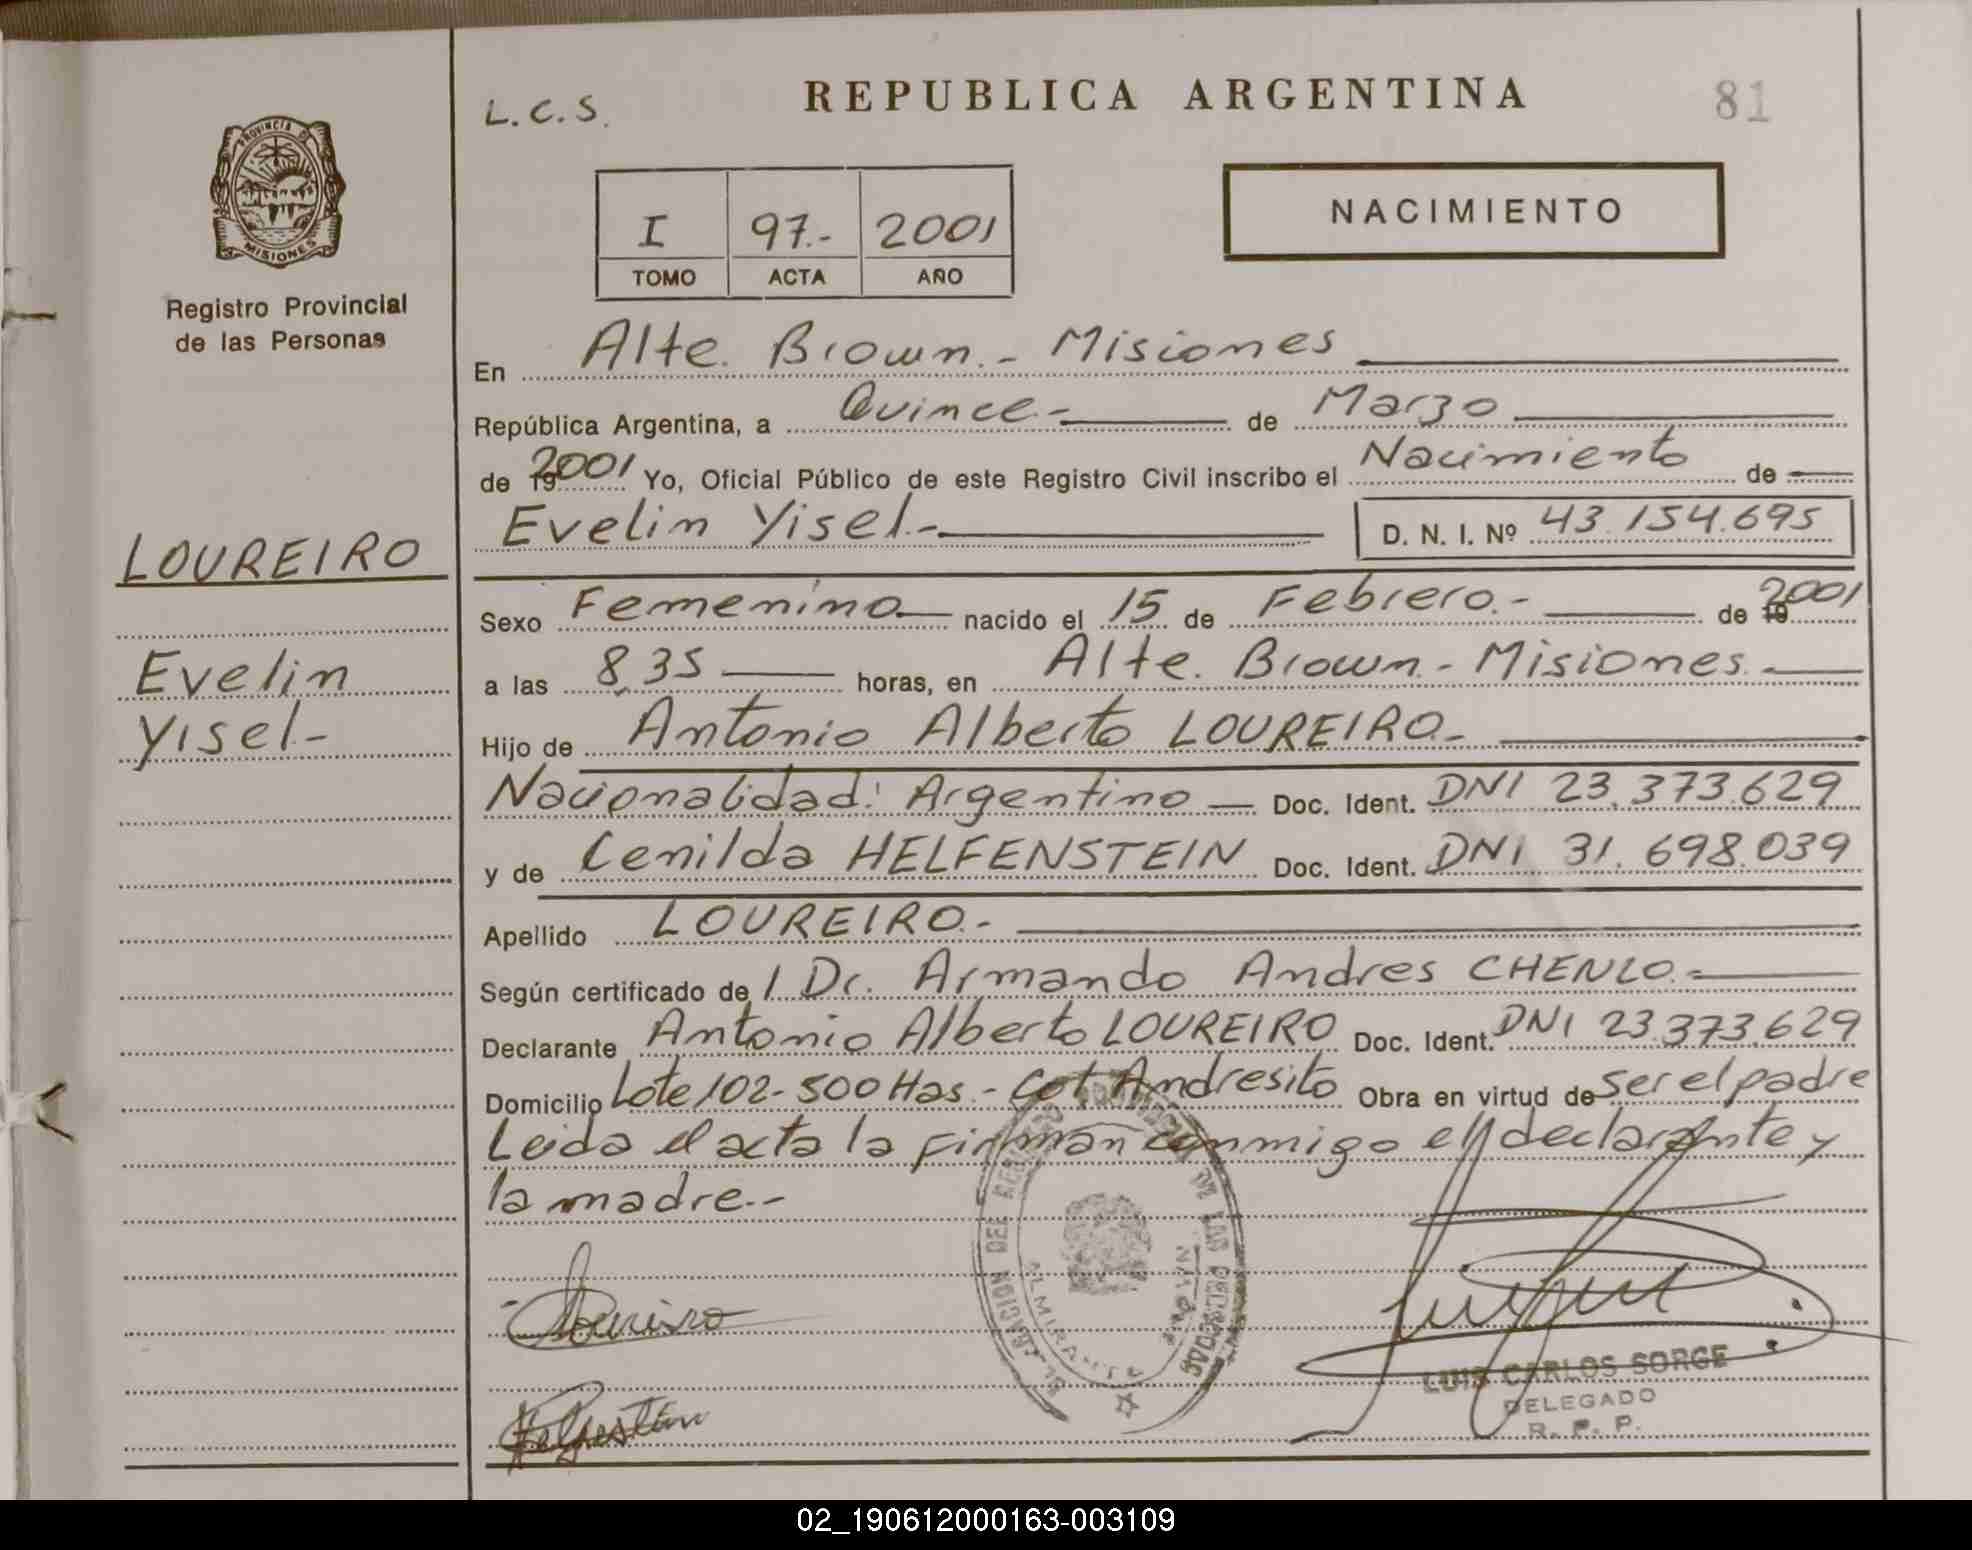 L.C.S.
REPUBLICA ARGENTINA
81
PROVINCIA DE
MISIONES
Registro Provincial
de las Personas
I 97.- 2001
TOMO ACTA AÑO
NACIMIENTO
En Alte. Brown.- Misiones
República Argentina, a Quince.- de Marzo
de 19 2001 Yo, Oficial Público de este Registro Civil inscribo el Nacimiento de
Evelin Yisel.- D. N. I. Nº 43.154.695
LOUREIRO
Evelin
Yisel.-
Sexo Femenino nacido el 15 de Febrero.- de 19 2001
a las 8,35 horas, en Alte. Brown.- Misiones.-
Hijo de Antonio Alberto LOUREIRO.-
Nacionalidad: Argentino Doc. Ident. DNI 23.373.629
y de Cenilda HELFENSTEIN Doc. Ident. DNI 31.698.039
Apellido LOUREIRO.-
Según certificado del Dr. Armando Andres CHENLO.-
Declarante Antonio Alberto LOUREIRO Doc. Ident. DNI 23.373.629
Domicilio Lote 102-500 Has.- Col. Andresito Obra en virtud de ser el padre
Leida el acta la firman conmigo el declarante y
la madre.-
DEL
DE LAS
ALMIRANTE
LUIS CARLOS SORGE
DELEGADO
R. P. P.
02_190612000163-003109